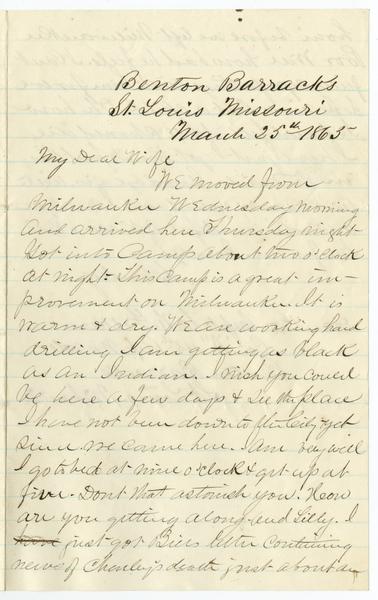 Benton Barracks
St. Louis Missouri
March 25th 1865
My Dear Wife
We moved from
Milwaukee Wednesday morning
And arrived here Thursday night
Got into Camp about two o'clock
at night. This Camp is a great im-
provement on Milwaukee. It is
warm & dry. We are working hard
drilling. I am getting as black
as an Indian. I wish you could
be here a few days & see the place
I have not been down to the City yet
since we came here. I am very well
I go to bed at nine o'clock & get up at
five. Dont that astonish you. How
are you getting along and Lilly. I
just got Bills letter containing
news of Charley's death just about an